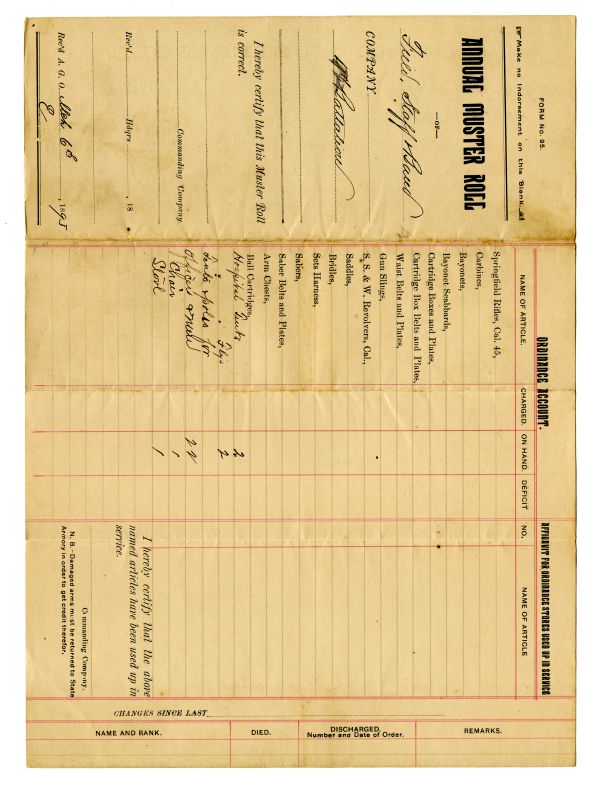 FORM No. 95.
Make no Indorsement on this Blank.
ANNUAL MUSTER ROLL
—OF—
Field, Staff & Band
COMPANY
Battalion
I hereby certify that this Muster Roll
is correct.
Commanding Company
Rec'd Hdqrs , 18
Rec'd A. G. O. Mch 6th , 1895
ORDINANCE ACCOUNT.
NAME OF ARTICLE. CHARGED. ON HAND. DEFICIT
Springfield Rifles, Cal. 45,
Carbines,
Bayonets,
Bayonet Scabbards,
Cartridge Boxes and Plates,
Cartridge Box Belts and Plates,
Waist Belts and Plates,
Gun Slings,
S. & W. Revolvers, Cal.,
Saddles,
Bridles,
Sets Harness,
Sabers,
Saber Belts and Plates,
Arm Chests,
Ball Cartridges,
Hospital Tents 2
" Flys 2
Tents & poles for
Officers & men 22
Chair 1
Stool 1
AFFIDAVIT FOR ORDINANCE STORES USED UP IN SERVICE
NO. NAME OF ARTICLE
I hereby certify that the above
named articles have been used up in
service.
Commanding Company.
N. B.—Damaged arms must be returned to State
Armory in order to get credit therefor.
CHANGES SINCE LAST
NAME AND RANK. DIED. DISCHARGED. REMARKS.
Number and Date of Order.